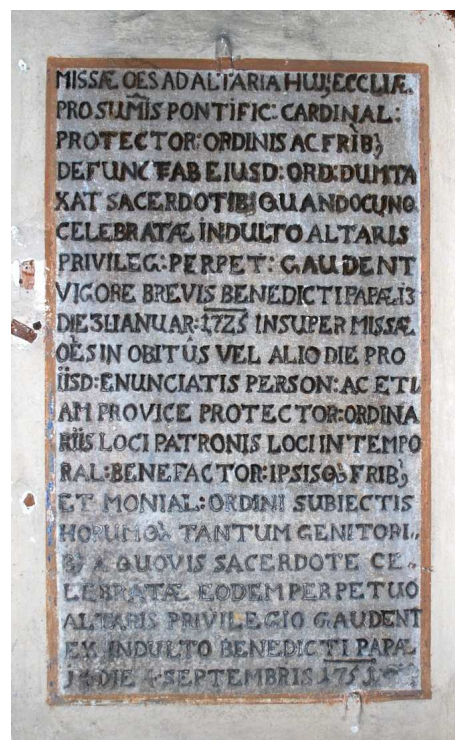 MISSÆ OES AD ALTARIA HUJ; ECCLIÆ.
PRO SUMIS PONTIFIC: CARDINAL:
PROTECTOR: ORDINIS AC FRIB;
DEFUNCT AB EIUSD: ORD: DUMTA
XAT SACERDOTIB; QUANDOCUNQ
CELEBRATÆ INDULTO ALTARIS
PRIVILEG: PERPET: GAUDENT
VIGORE BREVIS BENEDICTI PAPÆ 13
DIE 3I IANUAR: 1725 INSUPER MISSÆ
OES IN OBITUS VEL ALIO DIE PRO
IISD: ENUNCIATIS PERSON: AC ETI
AM PRO VICE PROTECTOR: ORDINA
RIIS LOCI PATRONIS LOCI IN TEMPO
RAL: BENEFACTOR: IPSISQ; FRIB;
ET MONIAL: ORDINI SUBIECTIS
HORUMQ; TANTUM GENITORI..
B; A QUOVIS SACERDOTE CE..
LEBRATÆ EODEM PERPETUO
ALTARIS PRIVILEGIO GAUDENT
EX INDULTO BENEDICTI PAPÆ
DIE 4 SEPTEMBRIS 1751